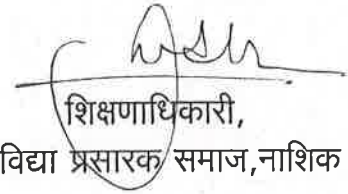 शिक्षणाधिकारी,
विद्या प्रसारक समाज,नाशिक